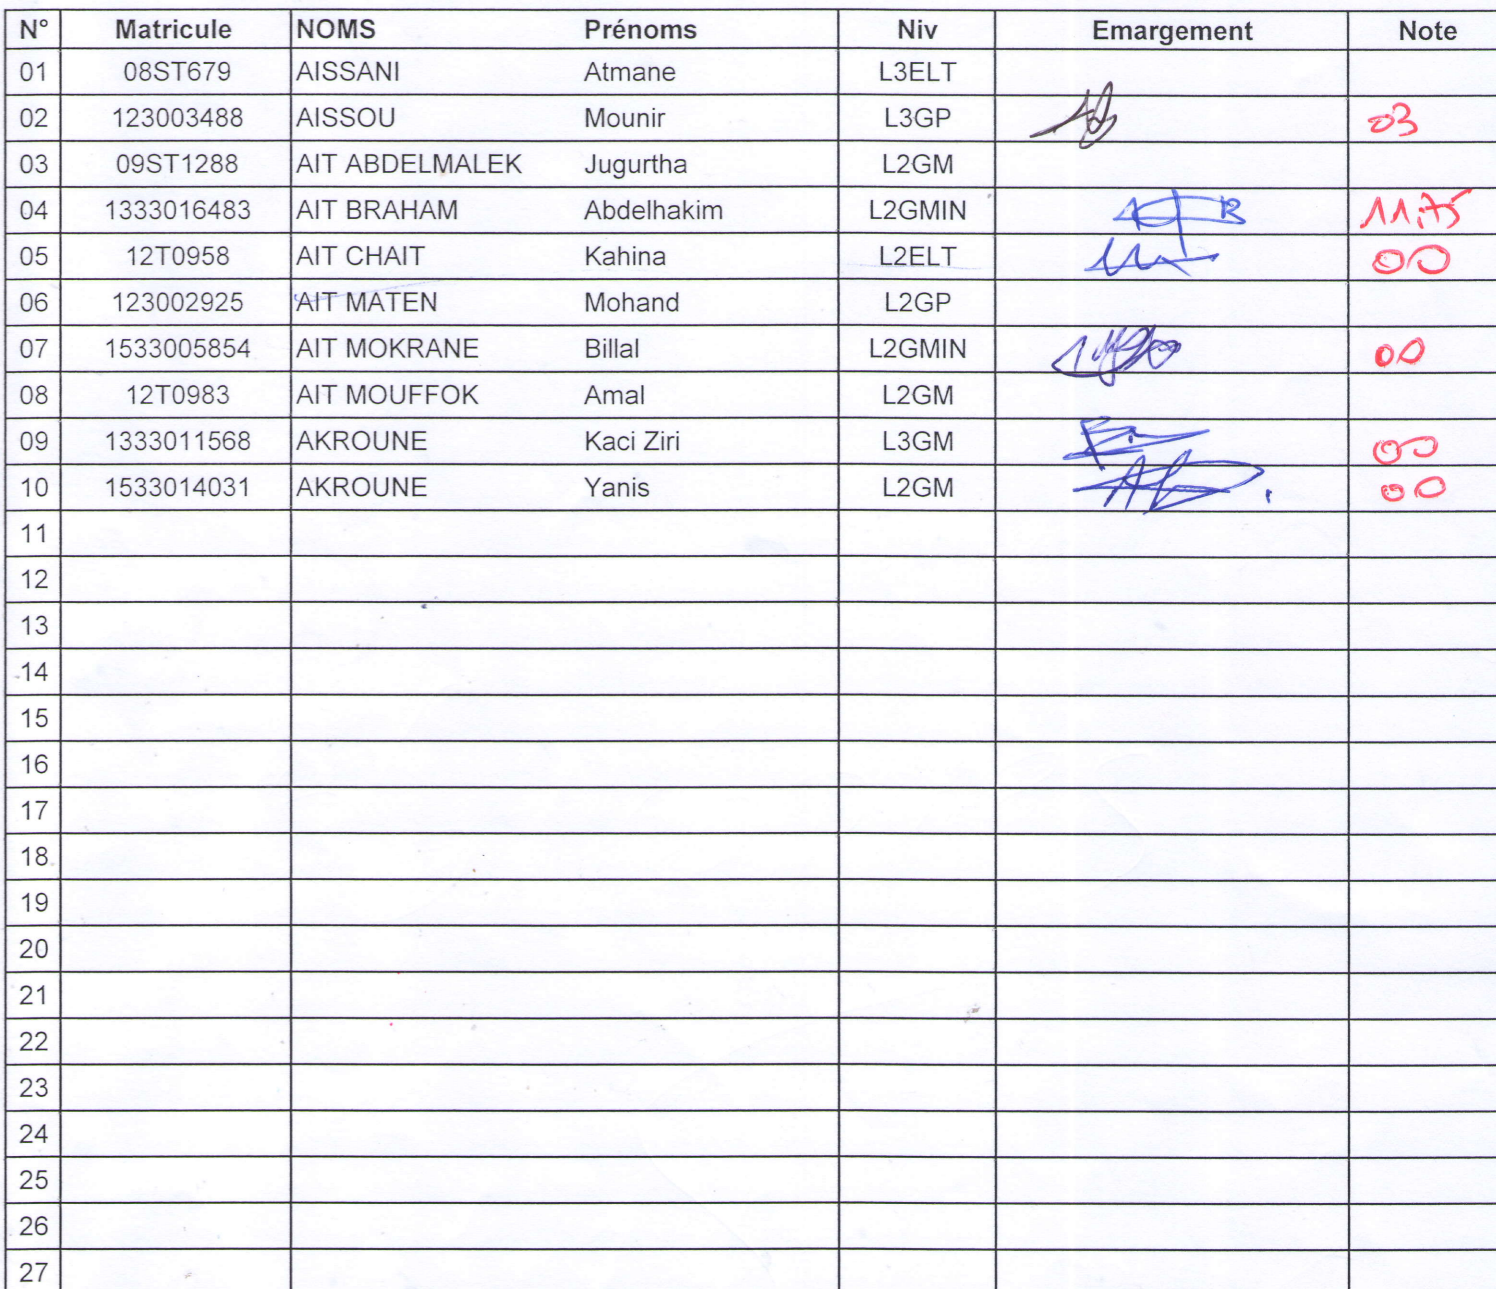 N° Matricule NOMS Prénoms Niv Emargement Note
01 08ST679 AISSANI Atmane L3ELT
02 123003488 AISSOU Mounir L3GP 03
03 09ST1288 AIT ABDELMALEK Jugurtha L2GM
04 1333016483 AIT BRAHAM Abdelhakim L2GMIN 11,75
05 12T0958 AIT CHAIT Kahina L2ELT 00
06 123002925 AIT MATEN Mohand L2GP
07 1533005854 AIT MOKRANE Billal L2GMIN 00
08 12T0983 AIT MOUFFOK Amal L2GM
09 1333011568 AKROUNE Kaci Ziri L3GM 00
10 1533014031 AKROUNE Yanis L2GM 00
11
12
13
14
15
16
17
18
19
20
21
22
23
24
25
26
27